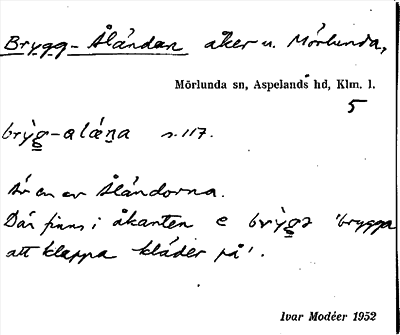 Brygg-Åländan åker u. Mörlunda,
Mörlunda sn, Aspelands hd, Klm. l.
5
brỳg̲-alæ̀n̲a s. 117.
Är en av Åländorna.
Där finns i åkanten e brỳg̲ə 'brygga
att klappa kläder på'.
Ivar Modéer 1952